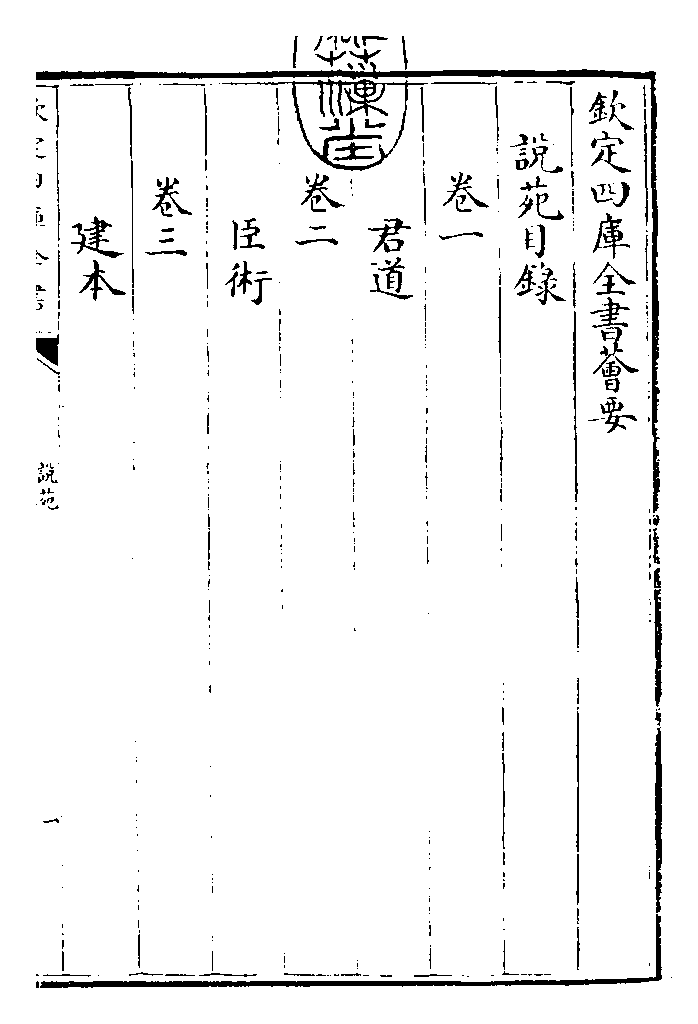 欽定四庫全書薈要
說苑目錄
卷一
君道
卷二
臣術
卷三
建本
說苑
一